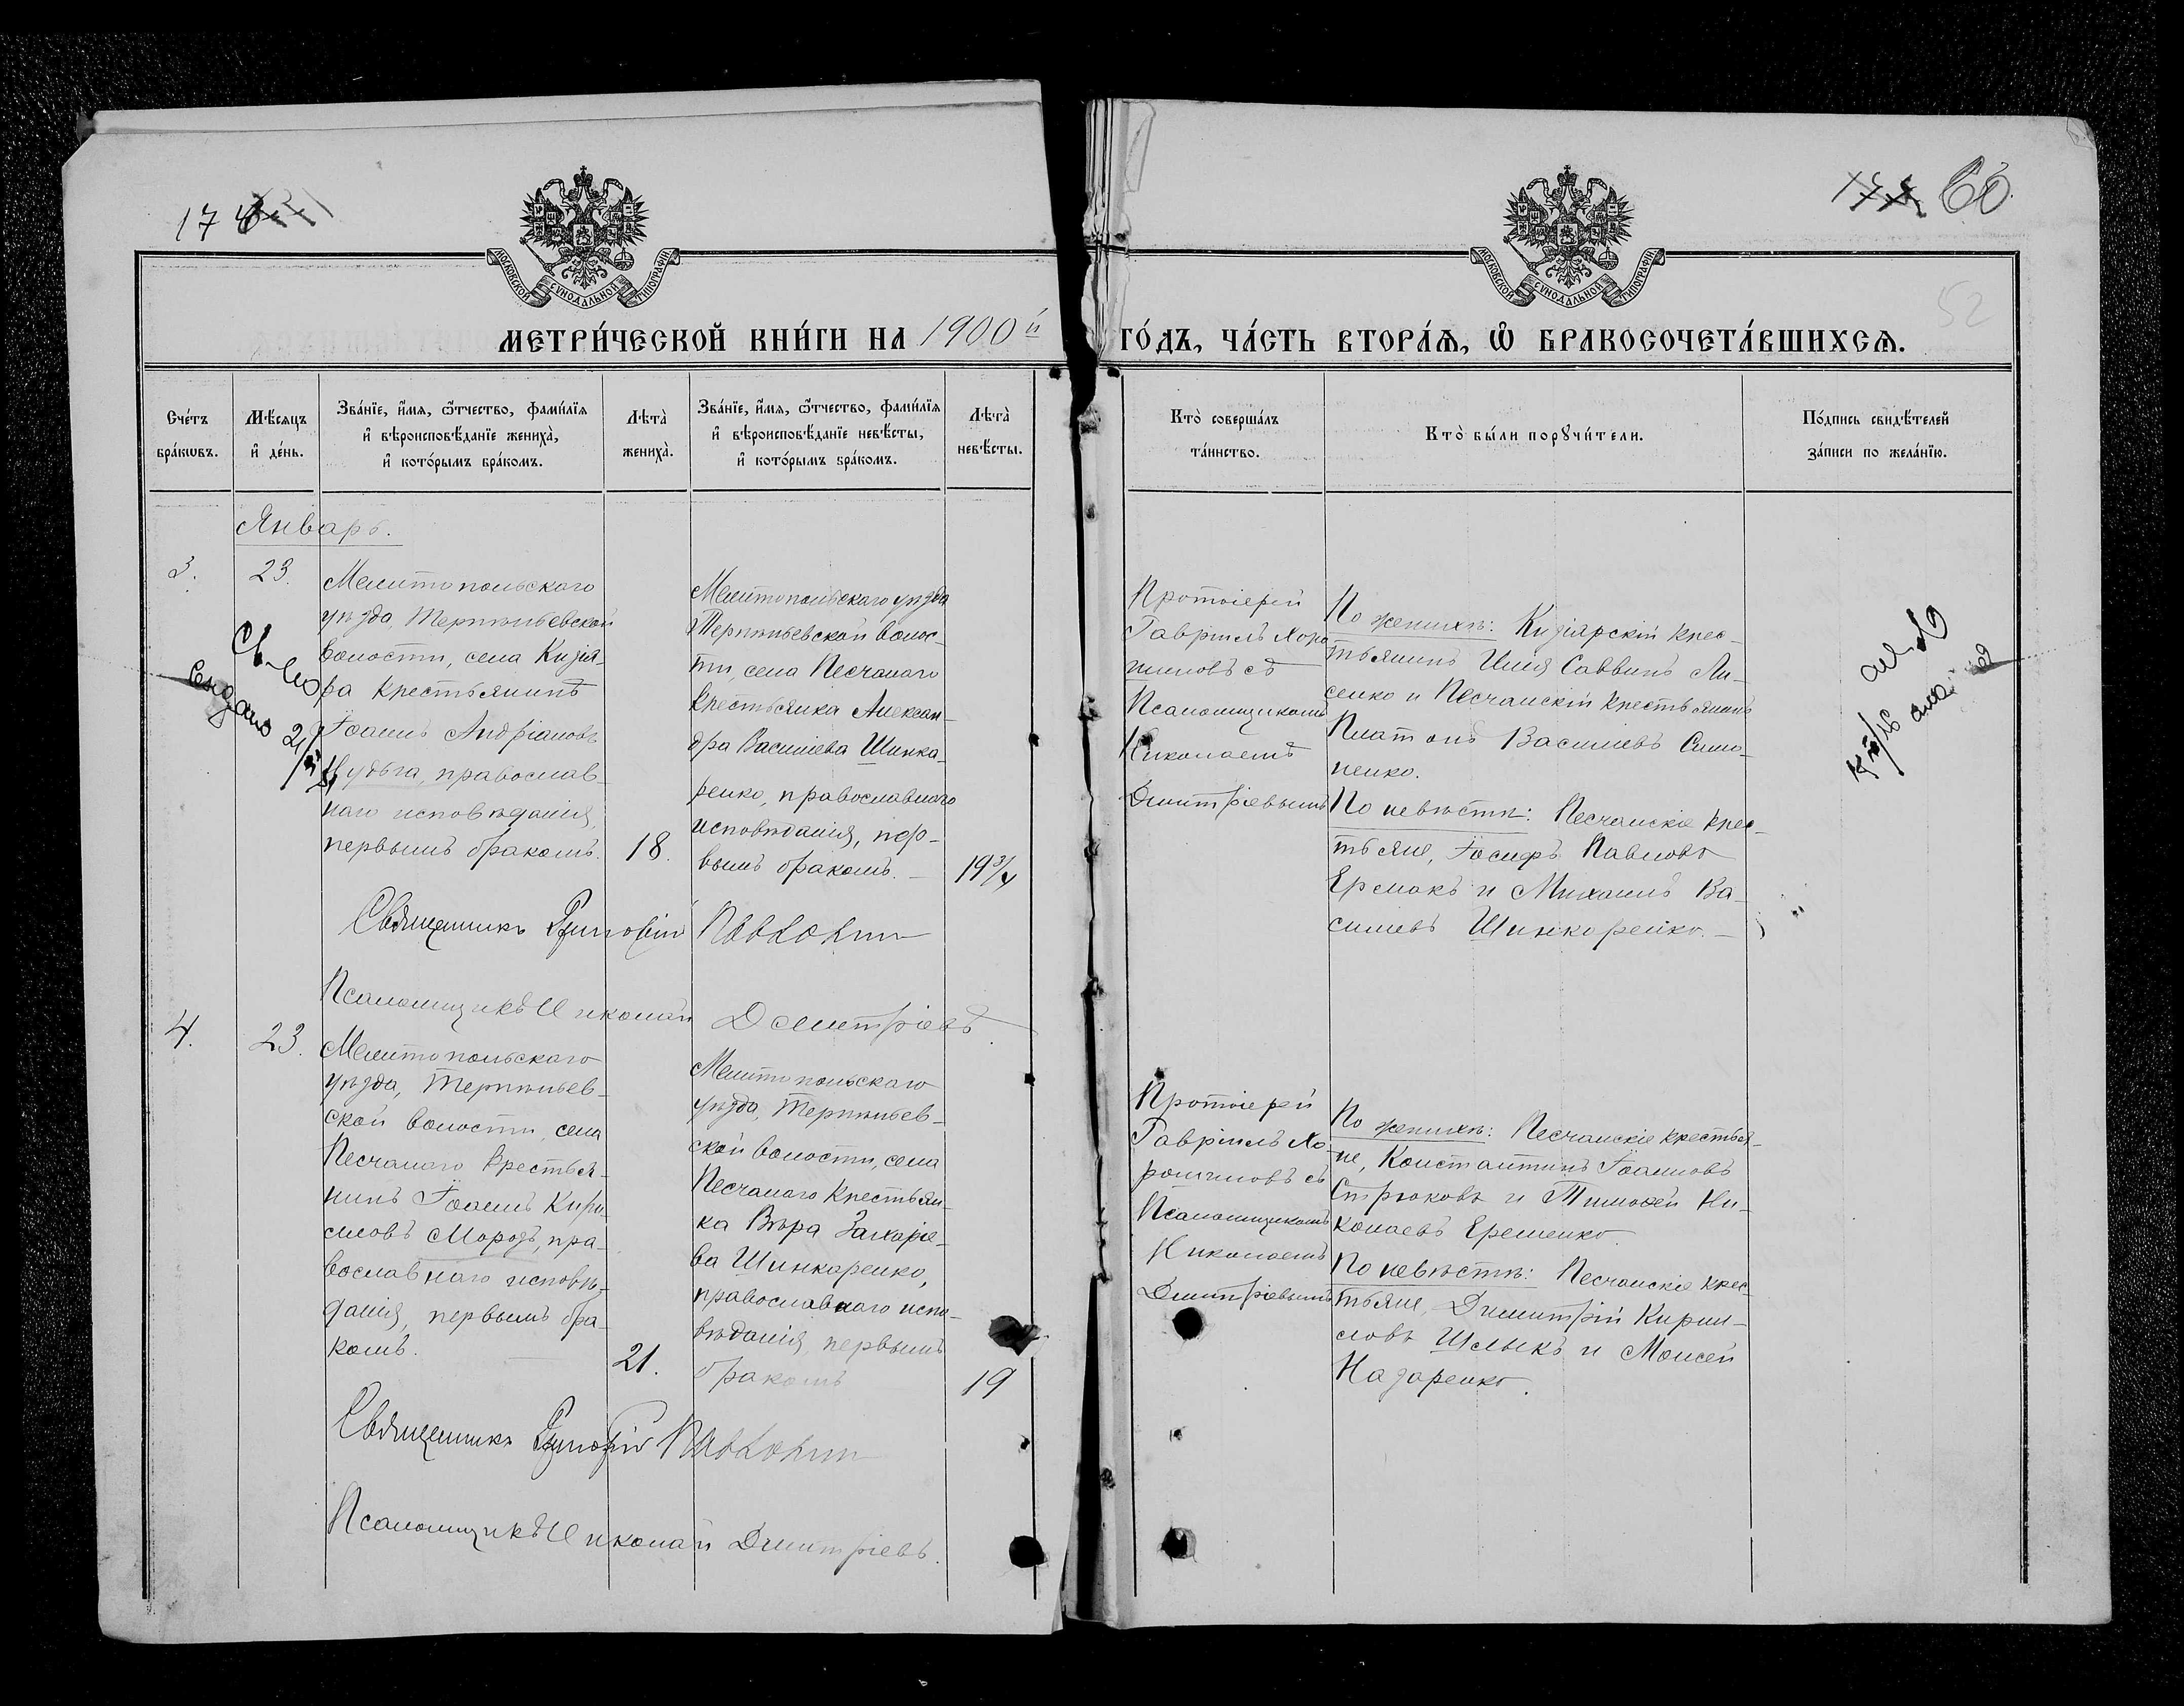 174
60
52
МОСКОВСКОЙ СѴНОДАЛЬНОЙ ТИПОГРАФІИ
МОСКОВСКОЙ СѴНОДАЛЬНОЙ ТИПОГРАФІИ
МЕТРИ́ЧЕСКОЙ КНИ́ГИ НА 1900й ГО́ДЪ, ЧА́СТЬ ВТОРА́Ѧ, Ѽ БРАКОСОЧЕТА́ВШИХСѦ.
Сче́тъ
бра́кѡвъ.
Мѣ́сѧцъ
и҆ де́нь.
Зва́нїе, и҆́мѧ, ѻ҆́тчество, фами́лїѧ
и҆ вѣроисповѣ́данїе жениха̀,
и҆ кото́рымъ бра́комъ.
Лѣта̀
жениха̀.
Зва́нїе, и҆́мѧ, ѻ҆́тчество, фами́лїѧ
и҆ вѣроисповѣ́данїе невѣ́сты,
и҆ кото́рымъ бра́комъ.
Лѣта̀
невѣ́сты.
Кто̀ соверша́лъ
та́инство.
Кто̀ бы́ли порꙋчи́тели.
По́дпись свидѣ́телей
за́писи по жела́нїю.
Январь.
3.
23.
Мелитопольскаго
уѣзда, Терпѣньевской
волости, села Кизія-
ра крестьянинъ
Іоаннъ Андріановъ
православ-
наго исповѣданія,
первымъ бракомъ.
18.
Мелитопольскаго уѣзда
Терпѣньевской волос-
ти, села Песчанаго
крестьянка Алексан-
дра Василіева Шинка-
ренко, православнаго
исповѣданія, пер-
вымъ бракомъ.–
19 3/4
Протоіерей
Гавріилъ Хоро
шиловъ съ
Псаломщикомъ
Николаемъ
Димитріевымъ
По женихѣ: Кизіярскій крес-
тьянинъ Илія Саввинъ Ли-
сенко и Песчанскій крестьянинъ
Платонъ Василіевъ Симо-
ненко.
По невѣстѣ: Песчанскіе крес-
тьяне, Іосифъ Павловъ
Ермакъ и Михаилъ Ва-
силіевъ Шинкаренко.–
Св-во
выдано
Священникъ Григорій
Псаломщикъ Николай Димитріевъ
4.
23.
Мелитопольскаго
уѣзда, Терпѣньев-
ской волости, села
Песчанаго крестья-
нинъ Іоаннъ Кири
лловъ Морозъ, пра-
вославнаго исповѣ-
данія, первымъ бра-
комъ.
21.
Мелитопольскаго
уѣзда, Терпѣньев-
ской волости, села
Песчанаго крестьян-
ка Вѣра Захаріе-
ва Шинкаренко,
православнаго испо-
вѣданія первымъ
бракомъ
19
Протоіерей
Гавріилъ Хо-
рошиловъ съ
Псаломщикомъ
Николаемъ
Димитріевымъ
По женихѣ: Песчанскіе крестья-
не, Константинъ Іоанновъ
Стрюковъ и Тимоѳей Ни-
колаевъ Еременко
По невѣстѣ: Песчанскіе крес-
тьяне, Димитрій Кирил-
ловъ Шлыкъ и Моисей
Назаренко.
Священникъ Григорій
Псаломщикъ Николай Димитріевъ.